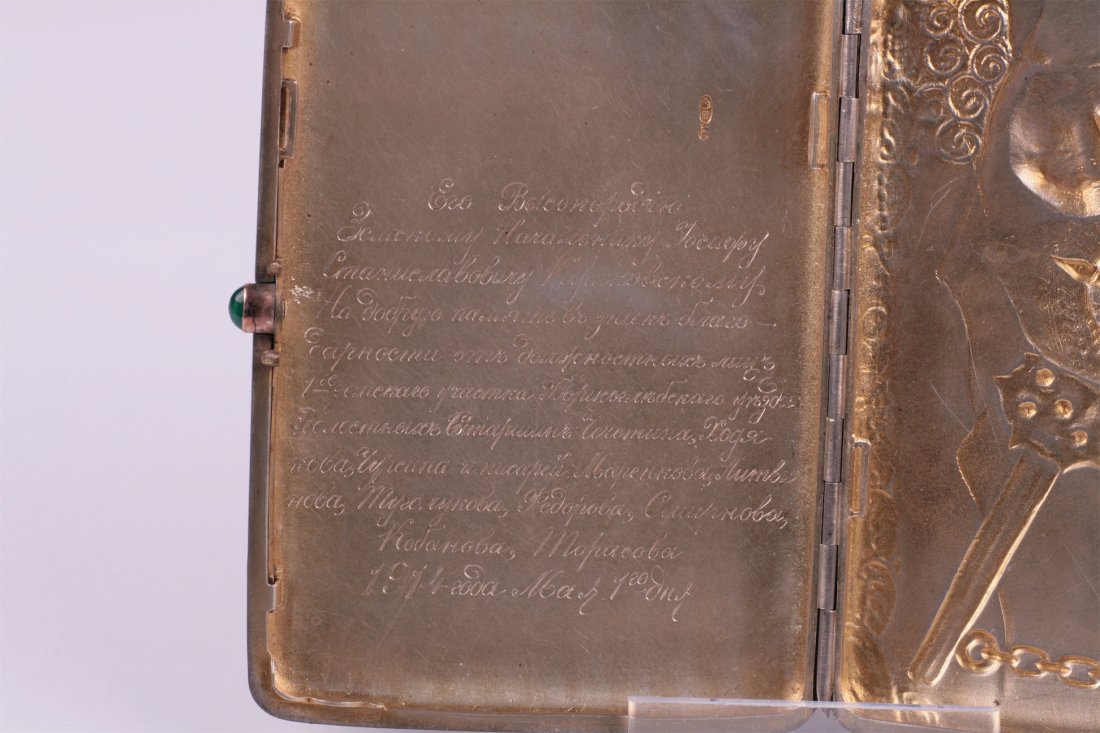 Его Высокородію
Земскому Начальнику Іосифу
Станиславовичу
На добрую память въ знакъ благо-
дарности отъ должностныхъ лицъ
1го Земскаго участка Борисоглѣбскаго уѣзда
Волостныхъ Старшинъ Чечетина, Ходя
кова, и писарей: Маренкова, Литви
нова, Федорова, Смирнова,
Кобанова, Борисова
1914 года Мая 1го дня